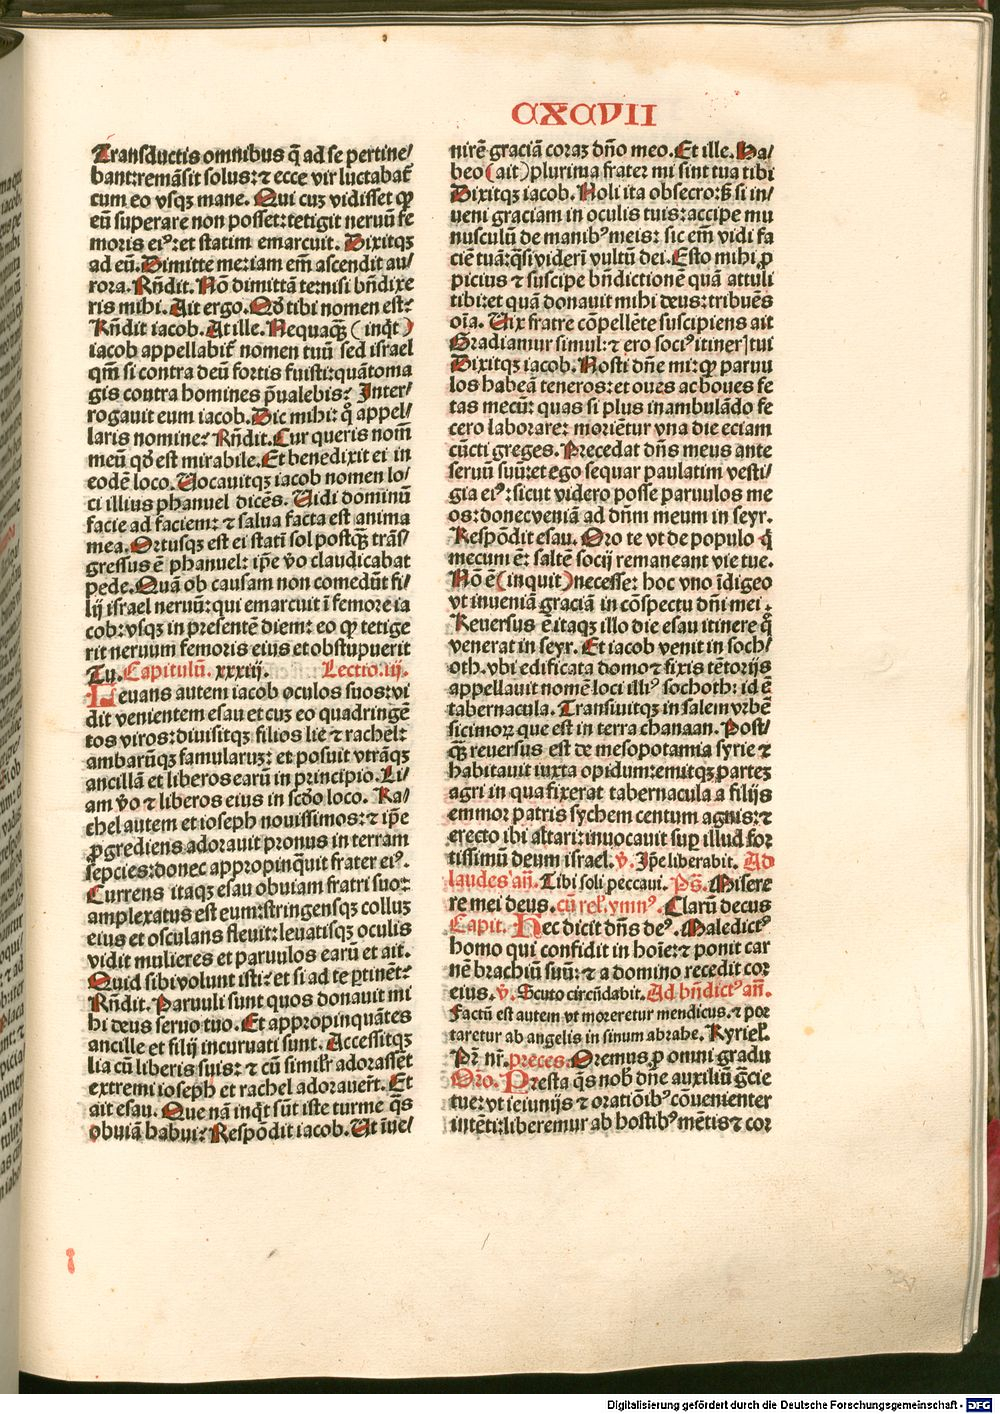 CXCVII
Transductis omnibus q̃ ad se pertine/
bant:remãsit solus:⁊ ecce vir luctabat᷑
cum eo vsqꝫ mane. Qui cuꝫ vidisset ꝙ
eũ superare non posset:tetigit neruũ fe
moris eiꝰ:et statim emarcuit. Dixitqꝫ
ad eũ. Dimitte me:iam em̃ ascendit au/
rora. Rñdit. Nõ dimittã te:nisi bñdixe
ris mihi. Ait ergo. Qđ tibi nomen est?
Rñdit iacob. At ille. Nequaqꝫ̃ (inq̇t)
iacob appellabit᷑ nomen tuũ sed israel
qm̃ si contra deũ fortis fuisti:quãtoma
gis contra homines p̃ualebis? Inter/
rogauit eum iacob. Dic mihi: q̊ appel/
laris nomine? Rñdit. Cur queris nom̃
meũ qđ est mirabile. Et benedixit ei in
eodẽ loco. Uocauitqꝫ iacob nomen lo/
ci illius phanuel dicẽs. Uidi dominũ
facie ad faciem: ⁊ salua facta est anima
mea. Ortusqꝫ est ei statĩ sol postqꝫ̃ trãs/
gressus ẽ phanuel: ip̃e v̊o claudicabat
pede. Quã ob causam non comedũt fi/
lij israel neruũ:qui emarcuit ĩ femore ia
cob:vsqꝫ in presentẽ diem: eo ꝙ tetige
rit neruum femoris eius et obstupuerit
Tu. Capitulũ. xxxiij. Lectio.iij.
Leuans autem iacob oculos suos:vi
dit venientem esau et cuꝫ eo quadringẽ
tos viros:diuisitqꝫ filios lie ⁊ rachel:
ambarũqꝫ famularuꝫ: et posuit vtrãqꝫ
ancillã et liberos earũ in principio. Li/
am v̊o ⁊ liberos eius in scđo loco. Ra/
chel autem et ioseph nouissimos:⁊ ip̃e
ꝓgrediens adorauit pronus in terram
sepcies:donec appropinq̃uit frater eiꝰ.
Currens itaqꝫ esau obuiam fratri suo:
amplexatus est eum:stringensqꝫ colluꝫ
eius et osculans fleuit:leuatisqꝫ oculis
vidit mulieres et paruulos earũ et ait.
Quid sibi volunt isti? et si ad te ꝑtinẽt?
Rñdit. Paruuli sunt quos donauit mi
hi deus seruo tuo. Et appropinquãtes
ancille et filij incuruati sunt. Accessitqꝫ
lia cũ liberis suis: ⁊ cũ simil᷑r adorassẽt
extremi ioseph et rachel adorauer̃t. Et
ait esau. Que nã inq̇t sũt iste turme q̃s
obuiã habui? Respõdit iacob. Ut ĩue/
nirẽ graciã coraꝫ dño meo. Et ille. Ha/
beo (ait) plurima frater mi sint tua tibi
Dixitqꝫ iacob. Noli ita obsecro:sꝫ si in/
ueni graciam in oculis tuis:accipe mu
nusculũ de manibꝰ meis: sic em̃ vidi fa
ciẽ tuã:q̃si viderĩ vultũ dei. Esto mihi ꝓ
picius ⁊ suscipe bñdictionẽ quã attuli
tibi:et quã donauit mihi deus:tribuẽs
oĩa. Uix fratre cõpellẽte suscipiens ait
Gradiamur simul:⁊ ero sociꝰ itinerꝭ tui
Dixitqꝫ iacob. Nosti dñe mi:ꝙ paruu
los habeã teneros:et oues ac boues fe
tas mecũ: quas si plus inambulãdo fe
cero laborare: moriẽtur vna die eciam
cũcti greges. Precedat dñs meus ante
seruũ suũ:et ego sequar paulatim vesti/
gia eiꝰ:sicut videro posse paruulos me
os:donec veniã ad dñm meum in seyr.
Respõdit esau. Oro te vt de populo q̇
mecum ẽ: saltẽ socij remaneant vie tue.
Nõ ẽ (inquit) necesse: hoc vno ĩdigeo
vt inueniã graciã in cõspectu dñi mei.
Reuersus ẽ itaqꝫ illo die esau itinere q̊
venerat in seyr. Et iacob venit in soch/
oth.vbi edificata domo ⁊ fixis tẽtorijs
appellauit nomẽ loci illiꝰ sochoth: id ẽ
tabernacula. Transiuitqꝫ in salem vrbẽ
sicimoꝝ que est in terra chanaan. Post/
qꝫ̃ reuersus est de mesopotamia syrie ⁊
habitauit iuxta opidum:emitqꝫ parteꝫ
agri in qua fixerat tabernacula a filijs
emmor patris sychem centum agnis:⁊
erecto ibi altari:inuocauit suꝑ illud for
tissimũ deum israel. v̊. Ip̃e liberabit. Ad
laudes añ. Tibi soli peccaui. Ps̃. Misere
re mei deus. cũ rel᷑. ymnꝰ. Clarũ decus
Capit. Hec dicit dñs deꝰ. Maledictꝰ
homo qui confidit in hoĩe:⁊ ponit car
nẽ brachiũ suũ:⁊ a domino recedit cor
eius. v̊. Scuto circũdabit. Ad bñdictꝰ añ.
Factũ est autem vt moreretur mendicus.⁊ por
taretur ab angelis in sinum abrahe. Kyriel᷑.
Pr̃ nr̃. preces. Oremus ꝓ omni gradu
Oro. Presta q̃s nob̃ dñe auxiliũ gr̃cie
tue:vt ieiunijs ⁊ oratiõibꝰ cõuenienter
intẽti:liberemur ab hostibꝰ mẽtis ⁊ cor
Digitalisierung gefördert durch die Deutsche Forschungsgemeinschaft - DFG